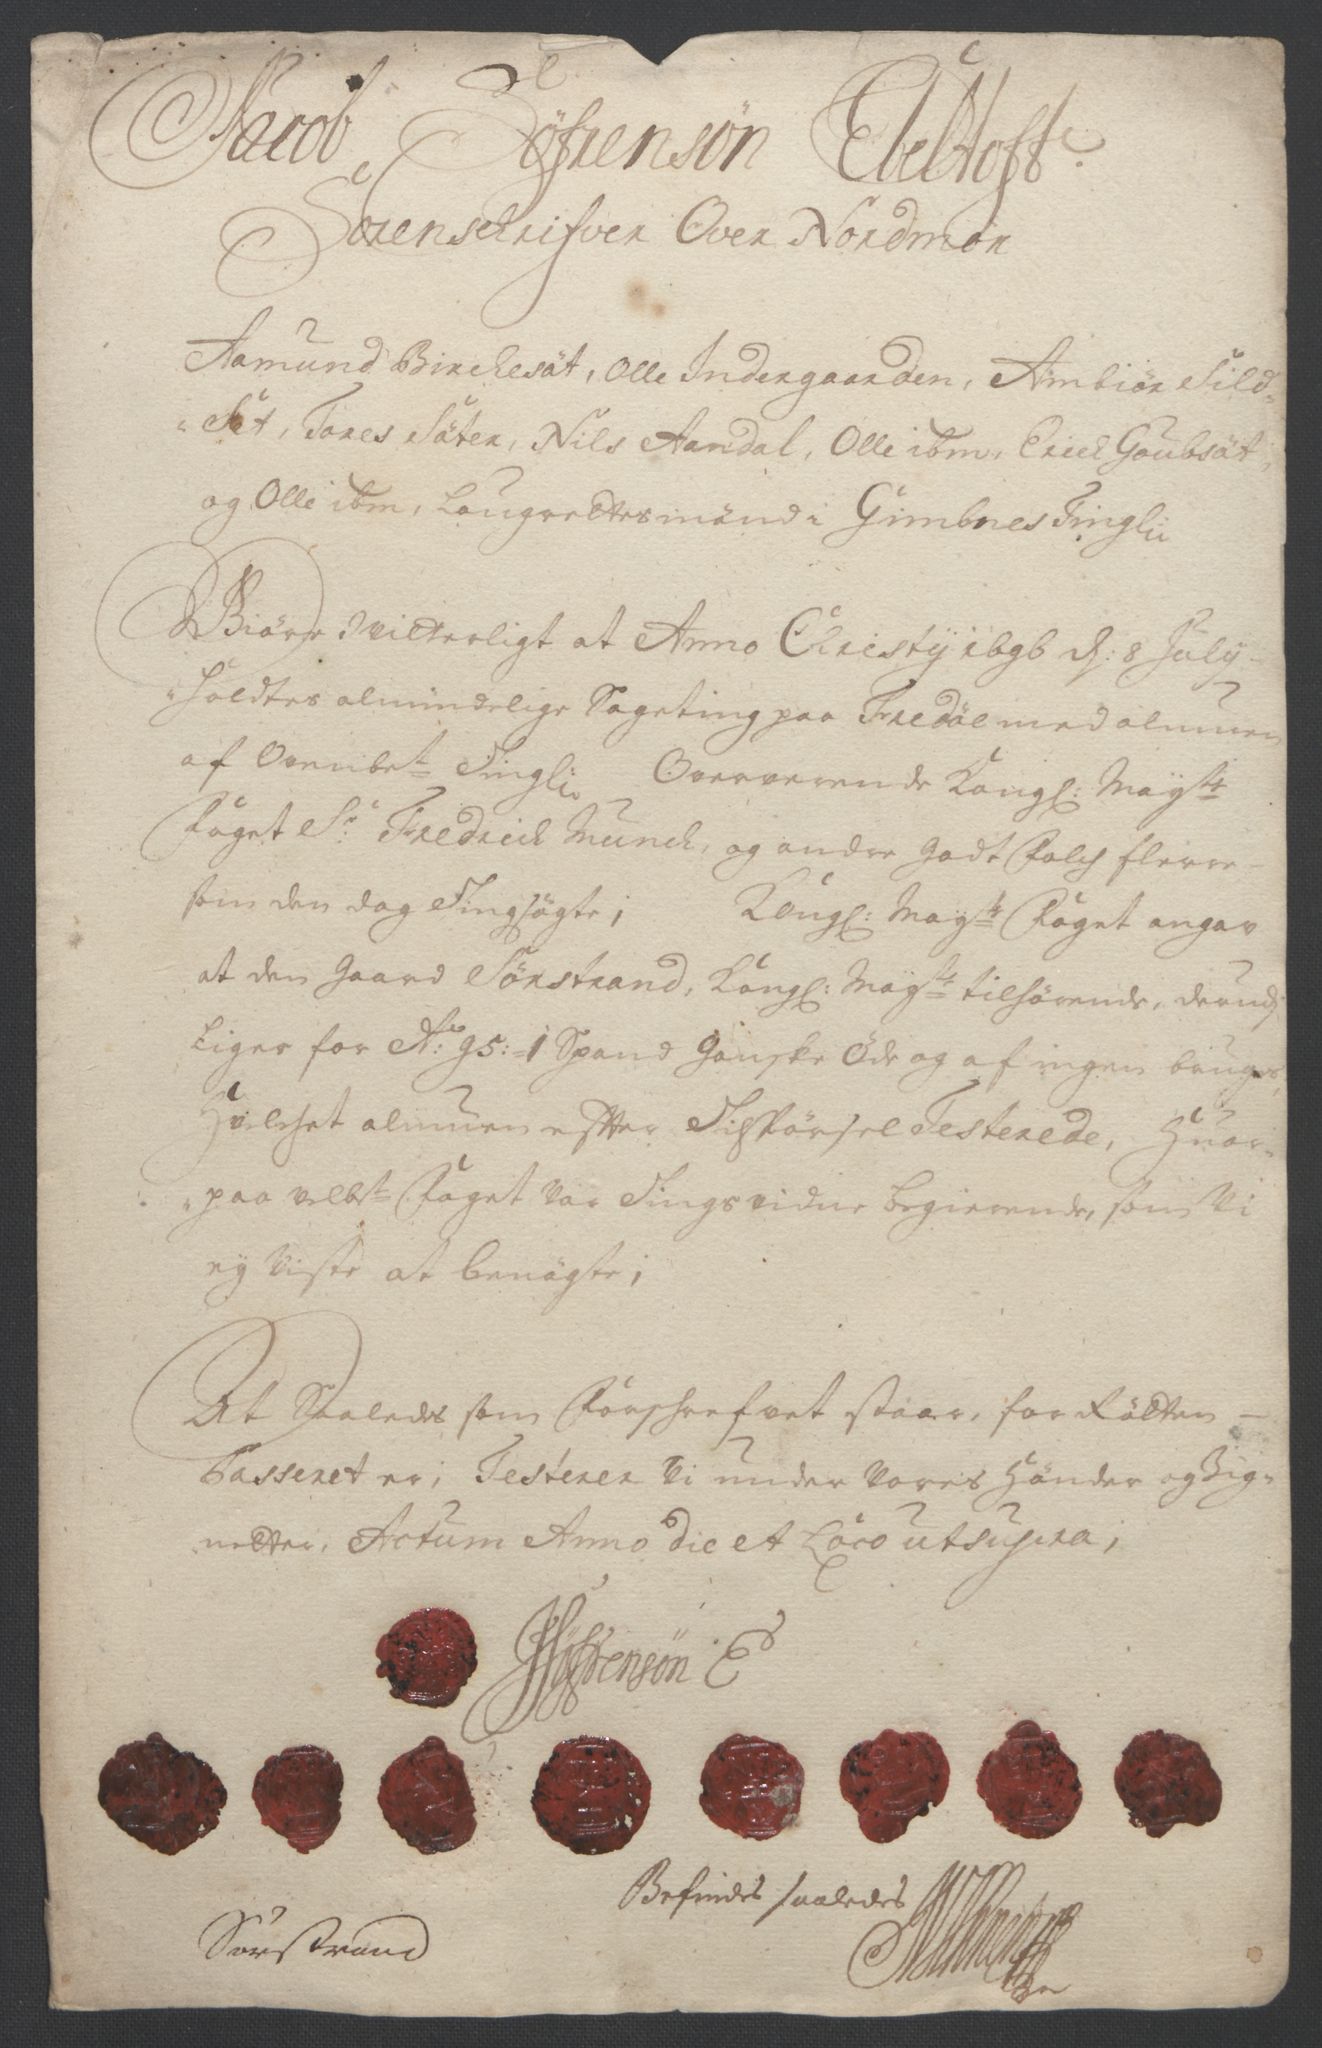 Jacob Söfrensön Ebeltoft
Sorenschrifver Over Nordmör
Aamund Birchesät, Olle Indergaarden, Ambiör Sild-
Set, Tores Säter, Nils Aandal, Olle ibm, Erich Goubsät,
og Olle ibm, Laugrettesmänd i Gimbnes Tingli
Giöre Vitterligt at Anno Christÿ 1696 d: 8 Julÿ
holdtes almindelige Sageting paa Fredöe med almuen
af Ovenbete Tingli Oververende Kongl: Mayts
Foget Sr Fredrich Munch, og andre godt Folch flerre
som den dag Tingsögte; Kongl: Mayts Foget angav
at den gaard Sörstrand, Kongl: Mayts tilhörende, derudj
Liger for Ao: 95: 1 Spand ganske Öde og af ingen bruges,
Hvilchet almuen efter Tilspörsel Testerede, Huor-
paa velbte Foget var Tings vidne begierende, som Vi
ey viste at benögte;
At Saaledes som Forschrefvet staar, for Rätten
Passeret er; Testerer Vi under vores Hænder og Sig-
netter, Actum Anno die et Loco ut supra;
JSöfrensön E
Befindes saaledes
Sörstrand